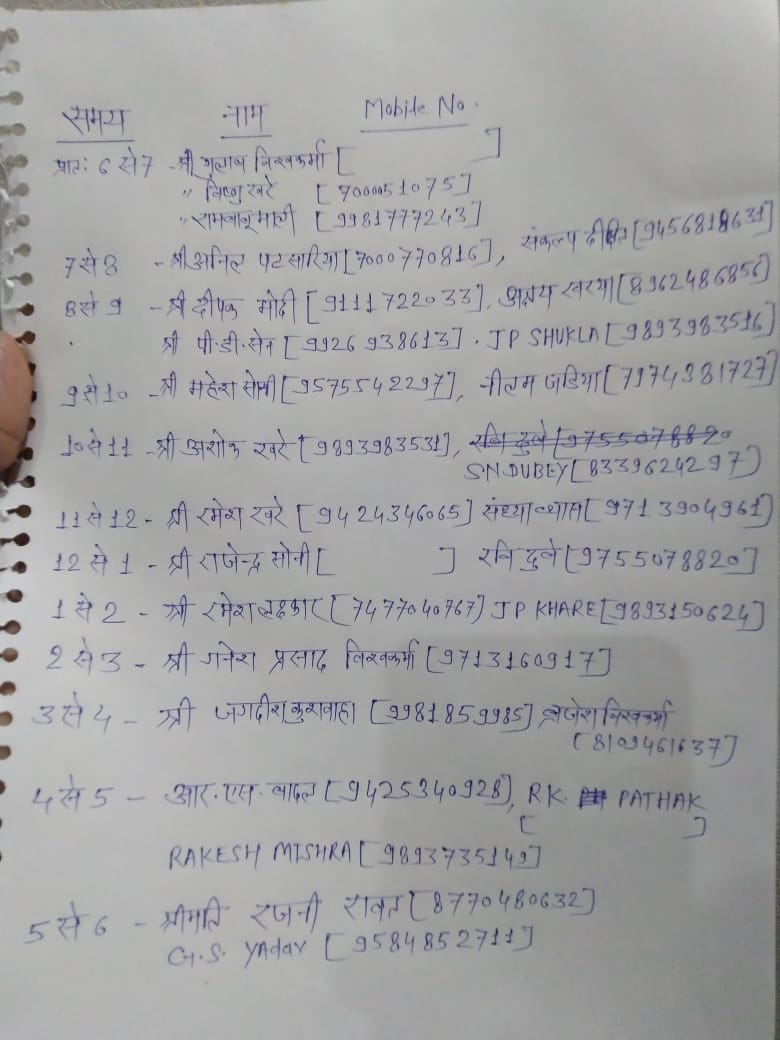 समय नाम Mobile No.
प्रातः 6 से 7 - श्री गुलाब विश्वकर्मा [ ]
" विष्णु खरे [700051075]
" रामबाबू माली [9981777243]
7 से 8 - श्री अनिल पटसारिया [7000770816], संकल्प दीक्षित [9456818631]
8 से 9 - श्री दीपक मोदी [9111722033], अक्षय खरया [8962486856]
श्री पी.डी. सेन [9926938613]. JP SHUKLA [9893983516]
9 से 10 - श्री महेश सोनी [9575542297], नीलम जडिया [7974381727]
10 से 11 - श्री अशोक खरे [9893983531], रवि दुबे [9755078820
SN DUBEY [8339624297]
11 से 12 - श्री रमेश खरे [9424346065] संध्या व्यास [9713904961]
12 से 1 - श्री राजेन्द्र सोनी [ ] रवि दुबे [9755078820]
1 से 2 - श्री रमेश लक्षकार [7477040767] JP KHARE [9893150624]
2 से 3 - श्री गनेश प्रसाद विश्वकर्मा [9713160917]
3 से 4 - श्री जगदीश कुशवाहा [9981859985] ब्रजेश विश्वकर्मा
[8109461637]
4 से 5 - आर. एस. बादल [9425340928], R.K. PATHAK
[ ]
RAKESH MISHRA [9893735149]
5 से 6 - श्रीमति रजनी रावत [8770480632]
G.S. YAdav [9584852711]